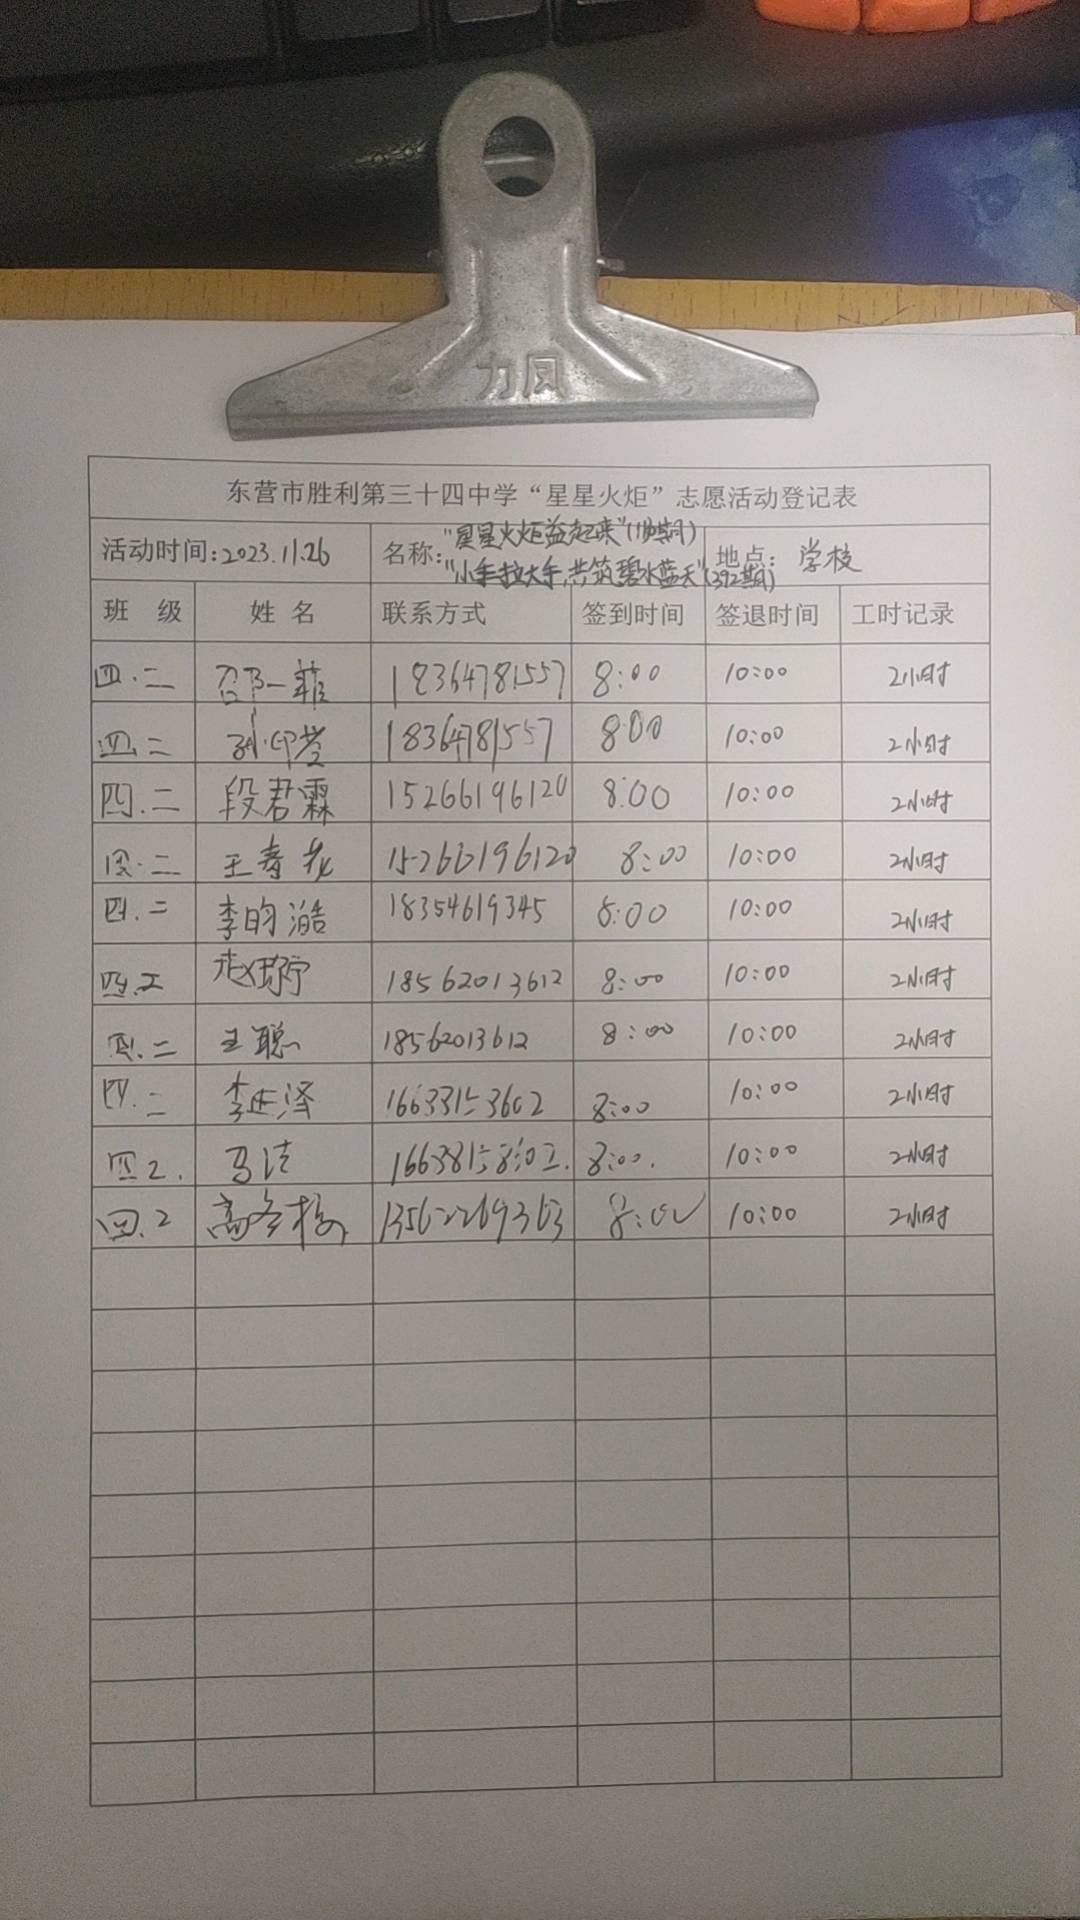 力风
东营市胜利第三十四中学“星星火炬”志愿活动登记表
活动时间:2023.11.26 名称:“星星火炬益起来” “小手拉大手,共筑碧水蓝天”(392期) 地点: 学校
班 级 姓 名 联系方式 签到时间 签退时间 工时记录
四.二 邵一菲 18364781557 8:00 10:00 2小时
四.二 18364781557 8:00 10:00 2小时
四.二 段君霖 15266196120 8:00 10:00 2小时
四.二 王春花 15266196120 8:00 10:00 2小时
四.二 李昀澔 18354619345 8:00 10:00 2小时
四.二 18562013612 8:00 10:00 2小时
四.二 王聪 18562013612 8:00 10:00 2小时
四.二 李延泽 8:00 10:00 2小时
四2. 马洁 8:00. 10:00 2小时
四.2 8:00 10:00 2小时